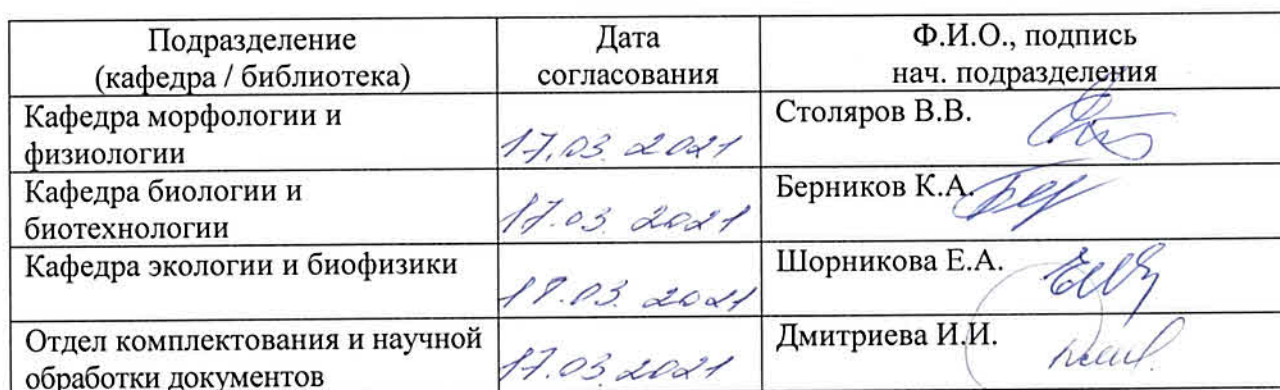 Подразделение
(кафедра / библиотека)
Дата
согласования
Ф.И.О., подпись
нач. подразделения
Кафедра морфологии и
физиологии
17.03.2021
Столяров В.В.
Кафедра биологии и
биотехнологии
17.03.2021
Берников К.А.
Кафедра экологии и биофизики
17.03.2021
Шорникова Е.А.
Отдел комплектования и научной
обработки документов
17.03.2021
Дмитриева И.И.